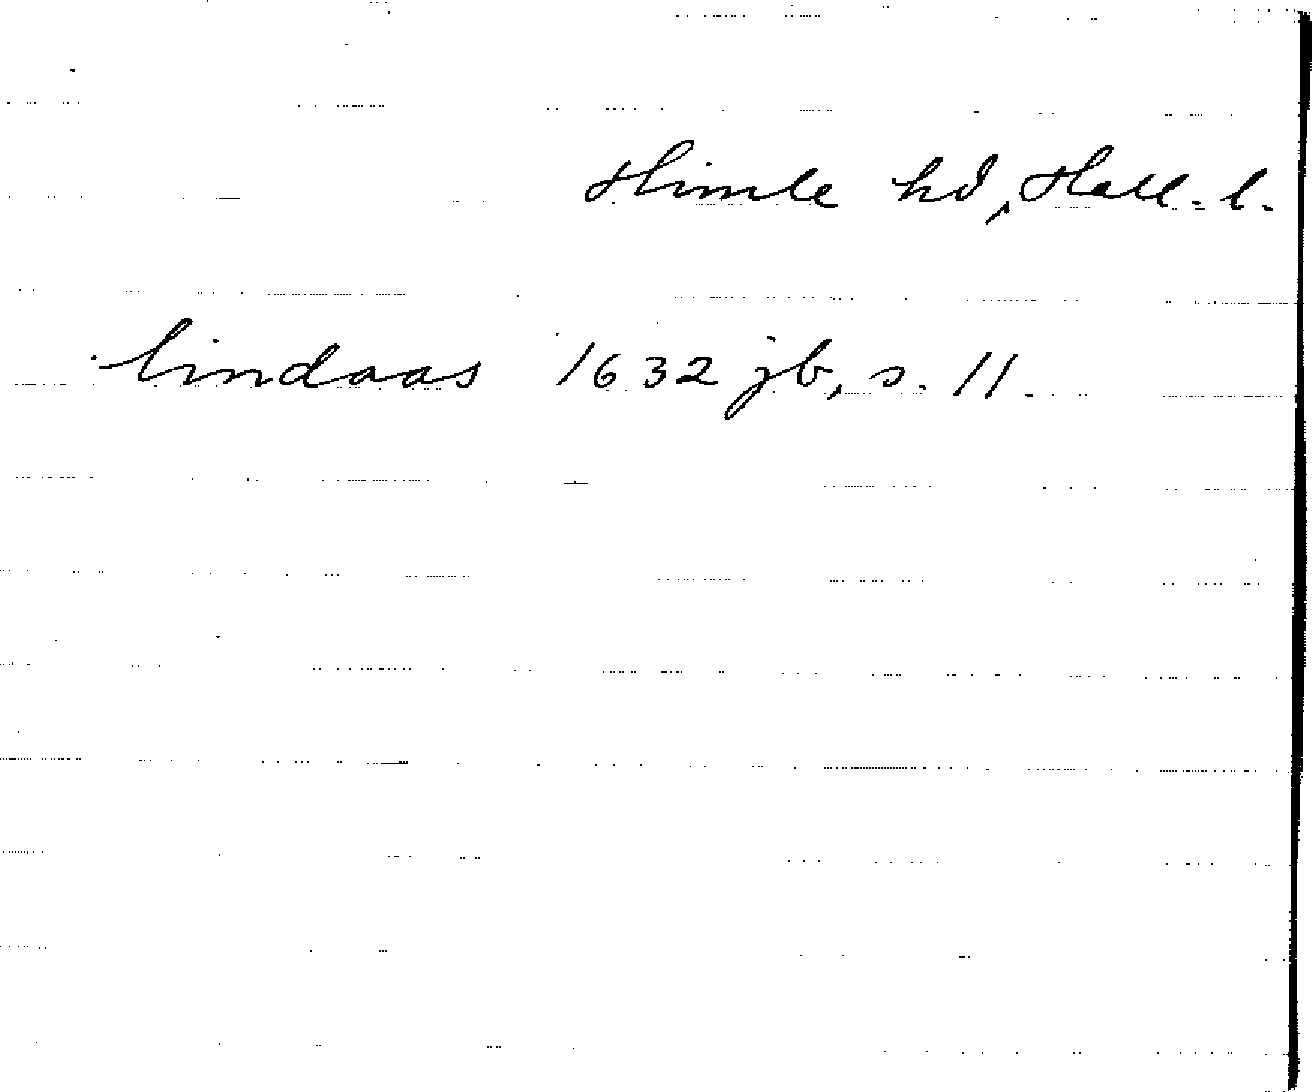 Himle hd, Hall. l.
Lindaas 1632 jb, s. 11.